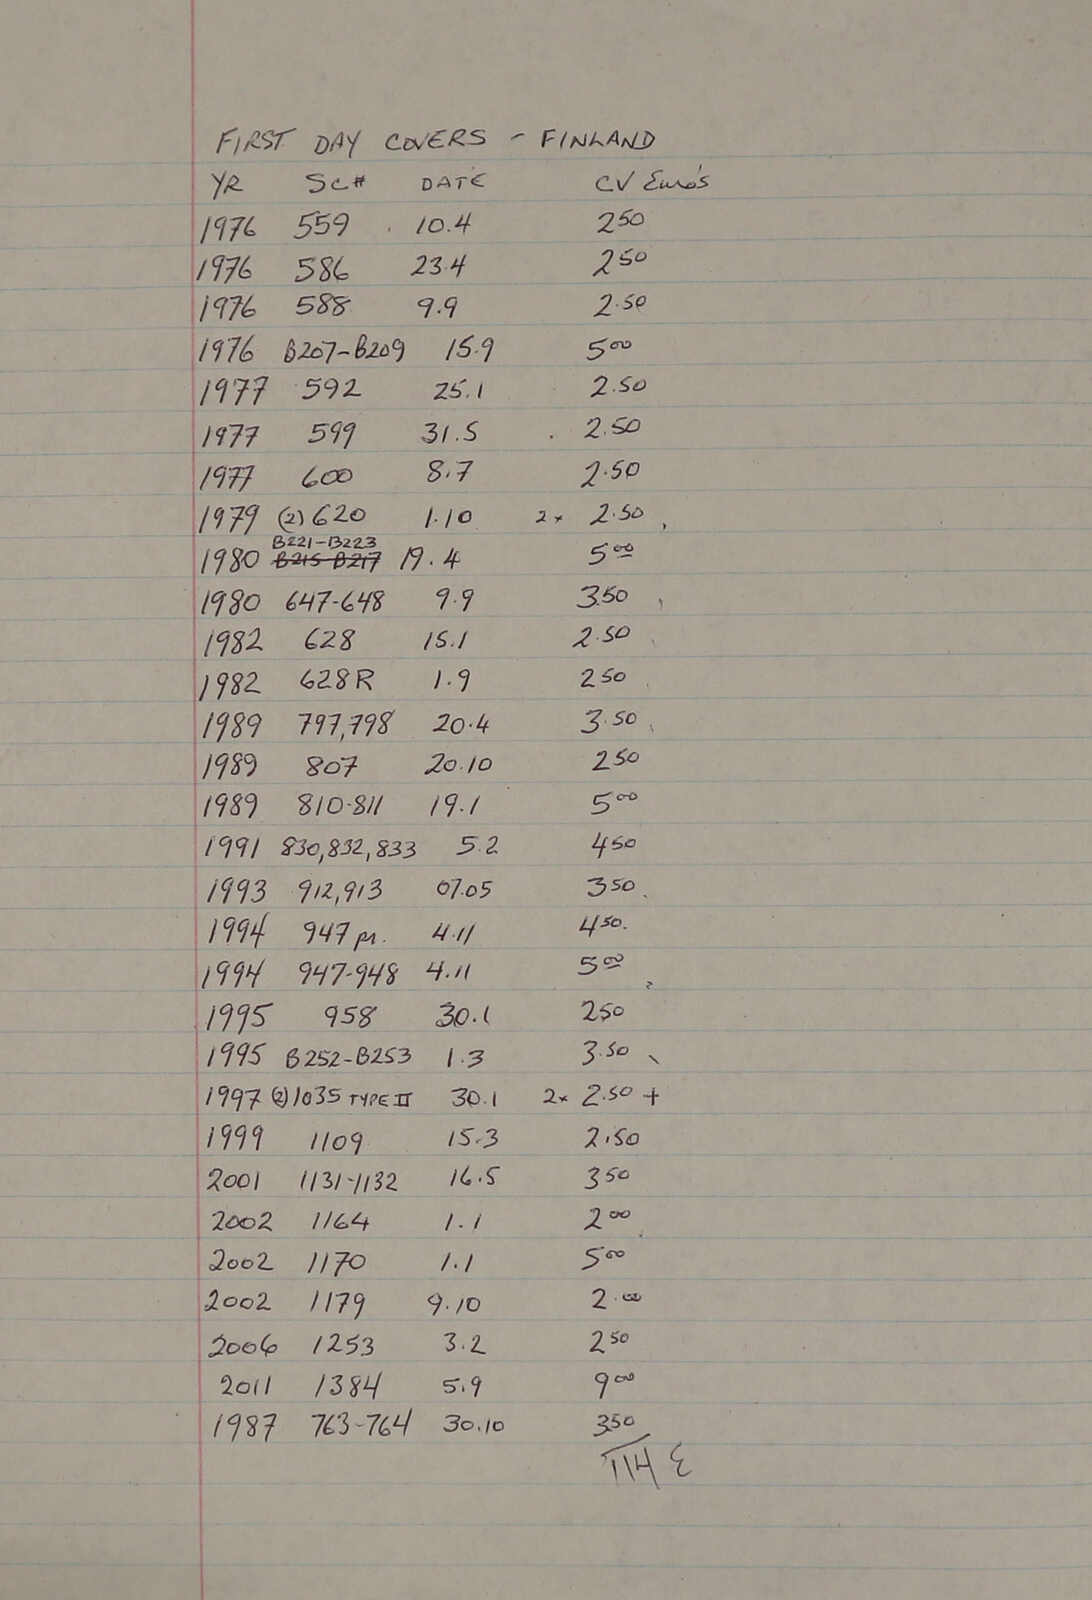 FIRST DAY COVERS - FINLAND
YR SC# DATE CV Euro's
1976 559 10.4 250
1976 586 23.4 250
1976 588 9.9 2.50
1976 B207-B209 15.9 500
1977 592 25.1 2.50
1977 599 31.5 2.50
1977 600 8.7 2.50
1979 (2) 620 1.10 2x 2.50
B221-B223
1980 B215-B217 19.4 500
1980 647-648 9.9 350
1982 628 15.1 2.50
1982 628R 1.9 250
1989 797,798 20.4 3.50
1989 807 20.10 250
1989 810-811 19.1 500
1991 830,832,833 5.2 450
1993 912,913 07.05 350
1994 947 pr. 4.11 450
1994 947-948 4.11 500
1995 958 30.1 250
1995 B252-B253 1.3 3.50
1997 (2) 1035 TYPE II 30.1 2x 2.50 +
1999 1109 15.3 2.50
2001 1131-1132 16.5 350
2002 1164 1.1 200
2002 1170 1.1 500
2002 1179 9.10 2.00
2006 1253 3.2 250
2011 1384 5.9 900
1987 763-764 30.10 350
114 €